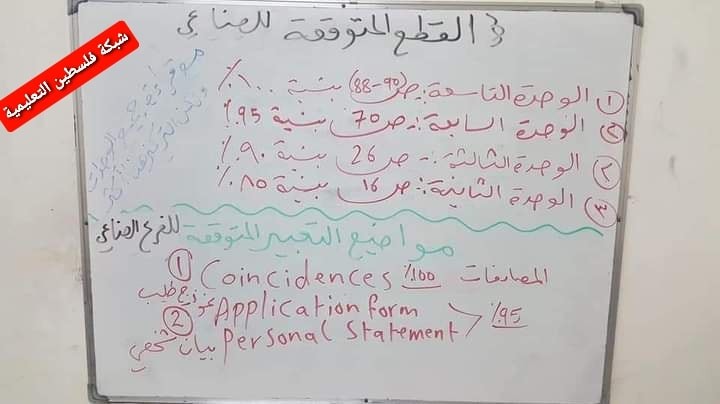 القطع المتوقعة للصناعي
شبكة فلسطين التعليمية
① الوحدة التاسعة :- ص (90-88) بنسبة ١٠٠٪
② الوحدة السابعة :- ص 70 بنسبة 95٪
② الوحدة الثالثة :- ص 26 بنسبة ٩٠٪
③ الوحدة الثانية :- ص 16 بنسبة ٨٥٪
مواضيع التعبير المتوقعة للفرع الصناعي
① Coincidences ٪100 المصادفات
② Application form نموذج طلب
Personal Statement بيان شخصي
٪95